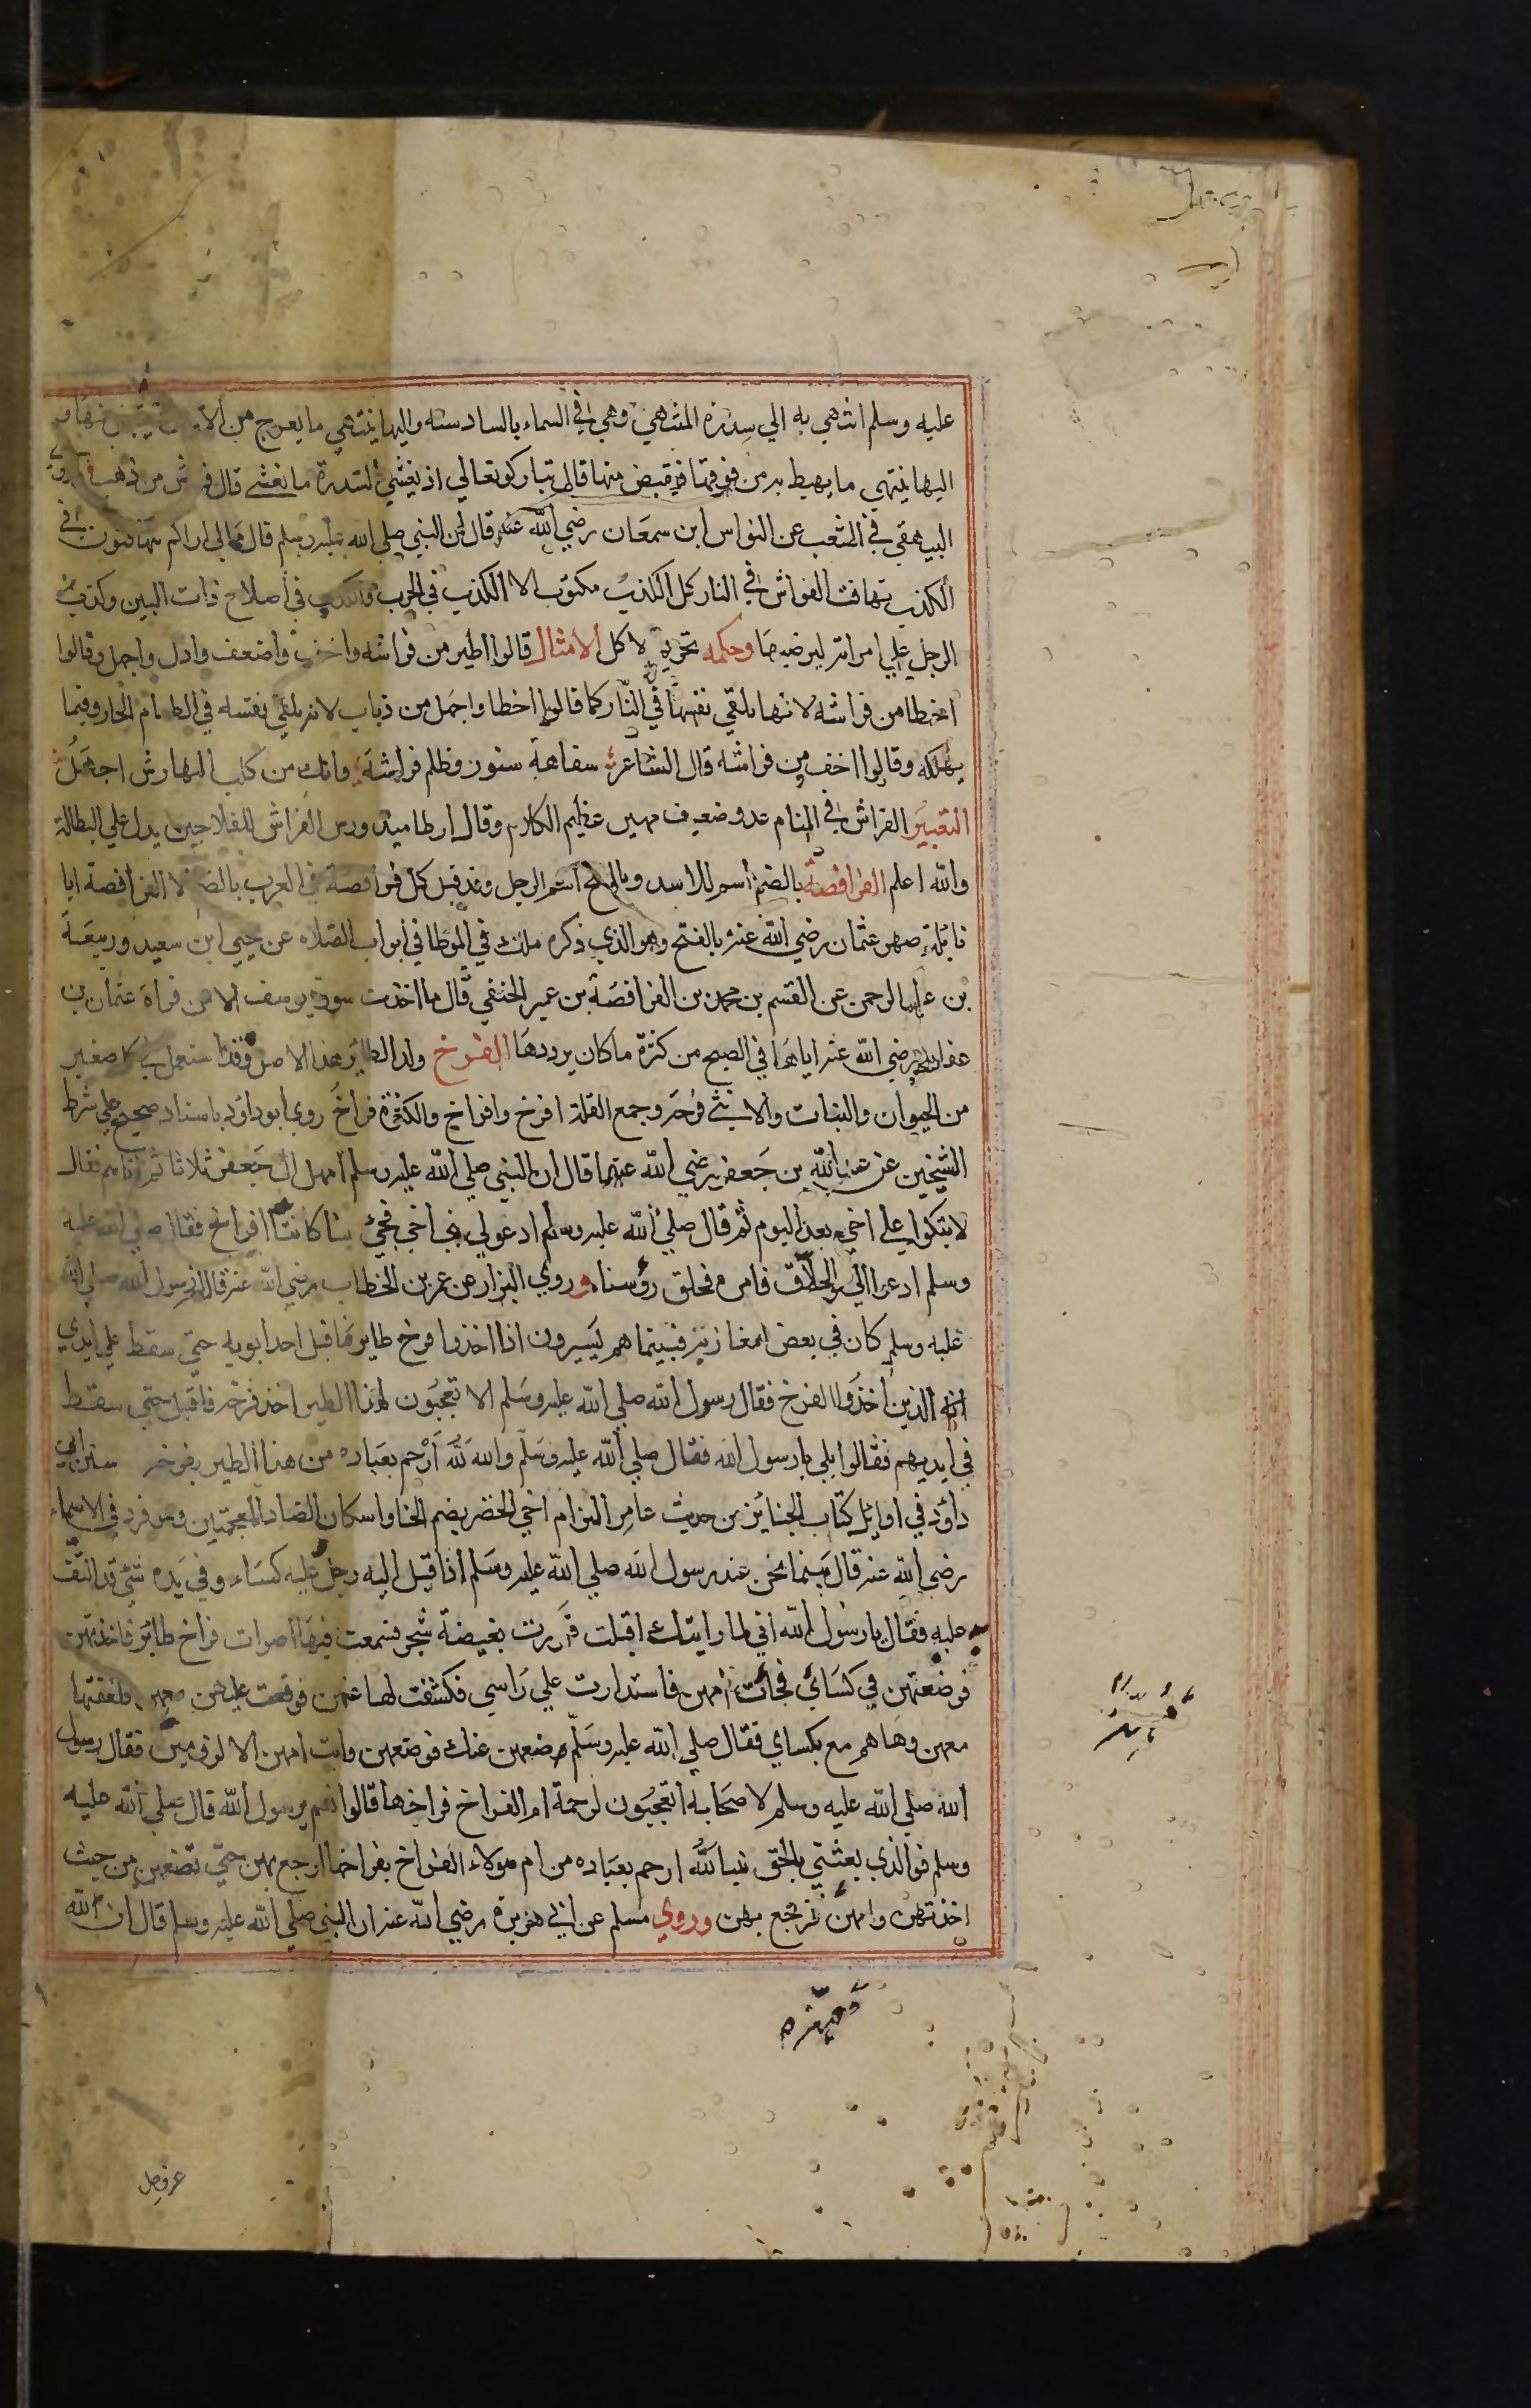 عليه وسلم انتهي به الي سدرة المنتهي وهي في السماء بالسادسة واليها ينتهي ما يعرج من
اليها ينتهي ما يهبط به من فوقها فيقبض منها قال تبارك وتعالي اذ يغشي السدرة ما يغشي قال فراش من ذهب
البيهقي في الشعب عن النواس ابن سمعان رضي الله عنه قال ان النبي صلي الله عليه وسلم قال مالي اراكم تتهافتون في
الكذب تهافت الفراش في النار كل الكذب مكتوب الا الكذب في الحرب والكذب في اصلاح ذات البين وكذب
الرجل علي امراته ليرضيها وحكمه تحريم لاكل الامثال قالوا اطير من فراشه واخف واضعف واذل واجهل وقالوا
اخطا من فراشه لانها تلقي نفسها في النار كما قالوا اخطا واجهل من ذباب لانه يلقي نفسه في الطعام الحار وفيما
يهلكه وقالوا اخف من فراشه قال الشاعر سفاهة سنور وظلم فراشة وانك من كلب المهارش اجهل
التعبير الفراش في المنام عدو ضعيف مهين عظيم الكلام وقال ارطاميدورس الفراش للفلاحين يدل علي البطالة
والله اعلم الفرافصة بالضم اسم للاسد وبالفتح اسم الرجل وقد قيل كل فرافصة في العرب بالضم الا الفرافصة ابا
نايلة صهر عثمان رضي الله عنه بالفتح وهو الذي ذكره ملك في الموطا في ابواب الصلاه عن يحيي ابن سعيد وربيعة
بن عبد الرحمن عن القسم بن محمد بن الفرافصة بن عمير الحنفي قال ما اخذت سورة يوسف الا من قراة عثمان بن
عفان رضي الله عنه اياها في الصبح من كثرة ما كان يرددها الفرخ ولد الطائر هذا الاصل وقد استعمل في كل صغير
من الحيوان والنبات والانثي فرخة وجمع القلة افرخ وافراخ والكثرة فراخ روي ابو داود باسناد صحيح علي شرط
الشيخين عن عبد الله بن جعفر رضي الله عنهما قال ان النبي صلي الله عليه وسلم امهل ال جعفر ثلاثا ثم اتاهم فقال
لا تبكوا علي اخي بعد اليوم ثم قال صلي الله عليه وسلم ادعو لي بني اخي فجئ بنا كاننا افراخ فقال صلي الله عليه
وسلم ادعوا الي الحلاق فامره فحلق رؤسنا وروي البزار عن عمر بن الخطاب رضي الله عنه قال ان رسول الله صلي الله
عليه وسلم كان في بعض المغازي فبينما هم يسيرون اذا اخذوا فرخ طاير فاقبل احد ابويه حتي سقط علي ايدي
الذين اخذوا الفرخ فقال رسول الله صلي الله عليه وسلم الا تعجبون لهذا الطير اخذ فرخه فاقبل حتي سقط
في ايديهم فقالوا بلي يا رسول الله فقال صلي الله عليه وسلم والله لله ارحم بعباده من هذا الطير بفرخه سنن ابي
داؤد في اوايل كتاب الجنايز من حديث عامر الرام اخي الخضر بضم الخا واسكان الضاد المعجمتين وهو فرد في الاسماء
رضي الله عنه قال بينما نحن عند رسول الله صلي الله عليه وسلم اذ اقبل اليه رجل عليه كساء وفي يده شئ قد التف
عليه فقال يا رسول الله اني لما رايتك اقبلت فمررت بغيضة شجر فسمعت فيها اصوات فراخ طائر فاخذتهن
فوضعتهن في كسائي فجاءت امهن فاستدارت علي راسي فكشفت لها عنهن فوقعت عليهن معهن فلففتها
معهن وهاهم مع بكساي فقال صلي الله عليه وسلم ضعهن عنك فوضعهن وابت امهن الا لزومهن فقال رسول
الله صلي الله عليه وسلم لاصحابه اتعجبون لرحمة ام الفراخ فراخها قالوا نعم يا رسول الله قال صلي الله عليه
وسلم فوالذي بعثني بالحق نبيا لله ارحم بعباده من ام هولاء الفراخ بفراخها ارجع بهن حتي تضعهن من حيث
اخذتهن وامهن فرجع بهن وروي مسلم عن ابي هريرة رضي الله عنه ان النبي صلي الله عليه وسلم قال ان لله